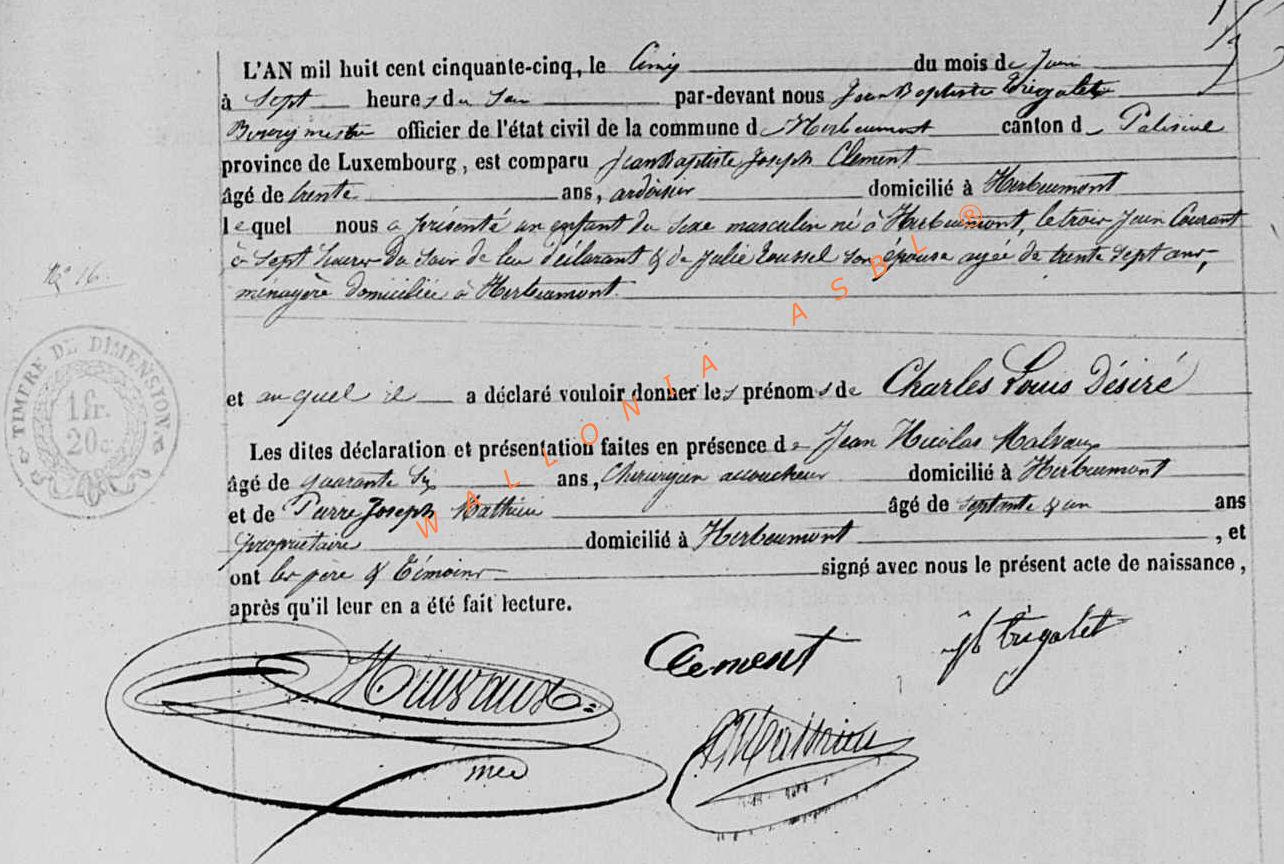 L'AN mil huit cent cinquante-cinq, le Cinq du mois de Juin
à Sept heures du Soir par-devant nous Jean Baptiste Trigalet
Bourgmestre officier de l'état civil de la commune d Herbeumont canton d Paliseul
province de Luxembourg, est comparu Jean Baptiste Joseph Clement
âgé de trente ans, ardoisier domicilié à Herbeumont
lequel nous a présenté un enfant du Sexe masculin né à Herbeumont, le trois Juin Courant
à Sept heures du Soir de lui déclarant & de Julie Roussel son épouse agée de trente sept ans,
ménagère domiciliée à Herbeumont.
N° 16.
TIMBRE DE DIMENSION
1 fr.
20c
et auquel il a déclaré vouloir donner les prénoms de Charles Louis Désiré
Les dites déclaration et présentation faites en présence de Jean Nicolas Malvaux
âgé de quarante Six ans, Chirurgien accoucheur domicilié à Herbeumont
et de Pierre Joseph Mathieu âgé de septante & un ans
propriétaire domicilié à Herbeumont, et
ont les père & témoins signé avec nous le présent acte de naissance,
après qu'il leur en a été fait lecture.
Clement
jb trigalet
Malvaux
Mathieu
WALLONIA ASBL ®